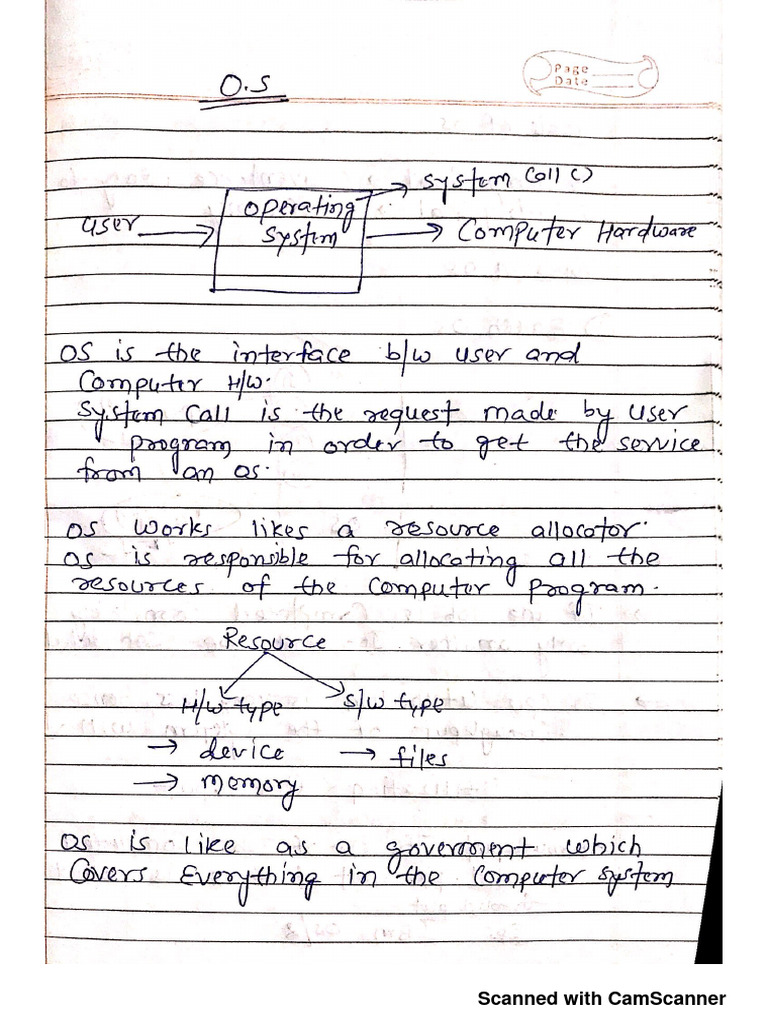 Page
Date
O.S
System Call ()
user
Operating
System
Computer Hardware
OS is the interface b/w user and
Computer H/W.
System Call is the request made by user
program in order to get the service
from an OS.
OS works likes a resource allocator.
OS is responsible for allocating all the
resources of the Computer program.
Resource
H/W type
S/W type
→ device
→ files
→ memory
OS is like as a goverment which
Covers Everything in the Computer System
Scanned with CamScanner